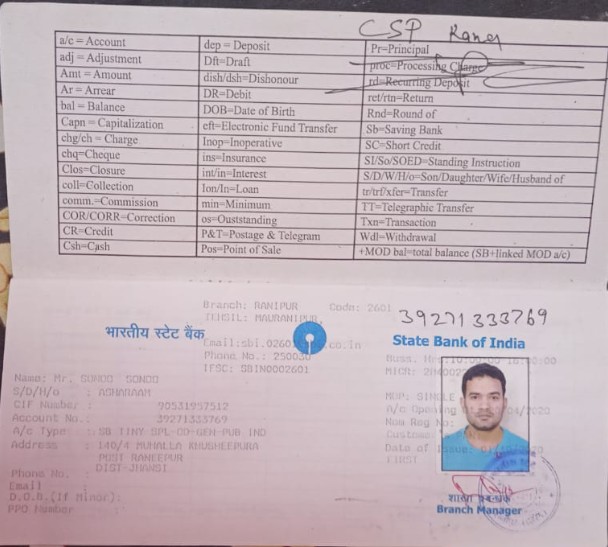 CSP
a/c = Account dep = Deposit Pr=Principal
adj = Adjustment Dft=Draft proc=Processing Charge
Amt = Amount dish/dsh=Dishonour rd=Recurring Deposit
Ar = Arrear DR=Debit ret/rtn=Return
bal = Balance DOB=Date of Birth Rnd=Round of
Capn = Capitalization eft=Electronic Fund Transfer Sb=Saving Bank
chg/ch = Charge Inop=Inoperative SC=Short Credit
chq=Cheque ins=Insurance SI/So/SOED=Standing Instruction
Clos=Closure int/in=Interest S/D/W/H/o=Son/Daughter/Wife/Husband of
coll=Collection Ion/In=Loan tr/trf/xfer=Transfer
comm.=Commission min=Minimum TT=Telegraphic Transfer
COR/CORR=Correction os=Ouststanding Txn=Transaction
CR=Credit P&T=Postage & Telegram Wdl=Withdrawal
Csh=Cash Pos=Point of Sale +MOD bal=total balance (SB+linked MOD a/c)
Branch: RANIPUR Code: 2601
39271333769
भारतीय स्टेट बैंक
State Bank of India
Phone No.:
IFSC: SBIN0002601
Name: Mr. SONOO SONOO
S/D/H/o : ASHARAAM
CIF Number : 90531957512
Account No.: 39271333769
A/c Type : SB TINY-SPL-OD-GEN-PUB IND
Address : 140/4 MUHALLA KHUSHEEPURA
POST RANEEPUR
DIST-JHANSI
Phone No. :
Email :
D.O.B.(If Minor):
PPO Number
Date of Issue:
शाखा प्रबन्धक
Branch Manager